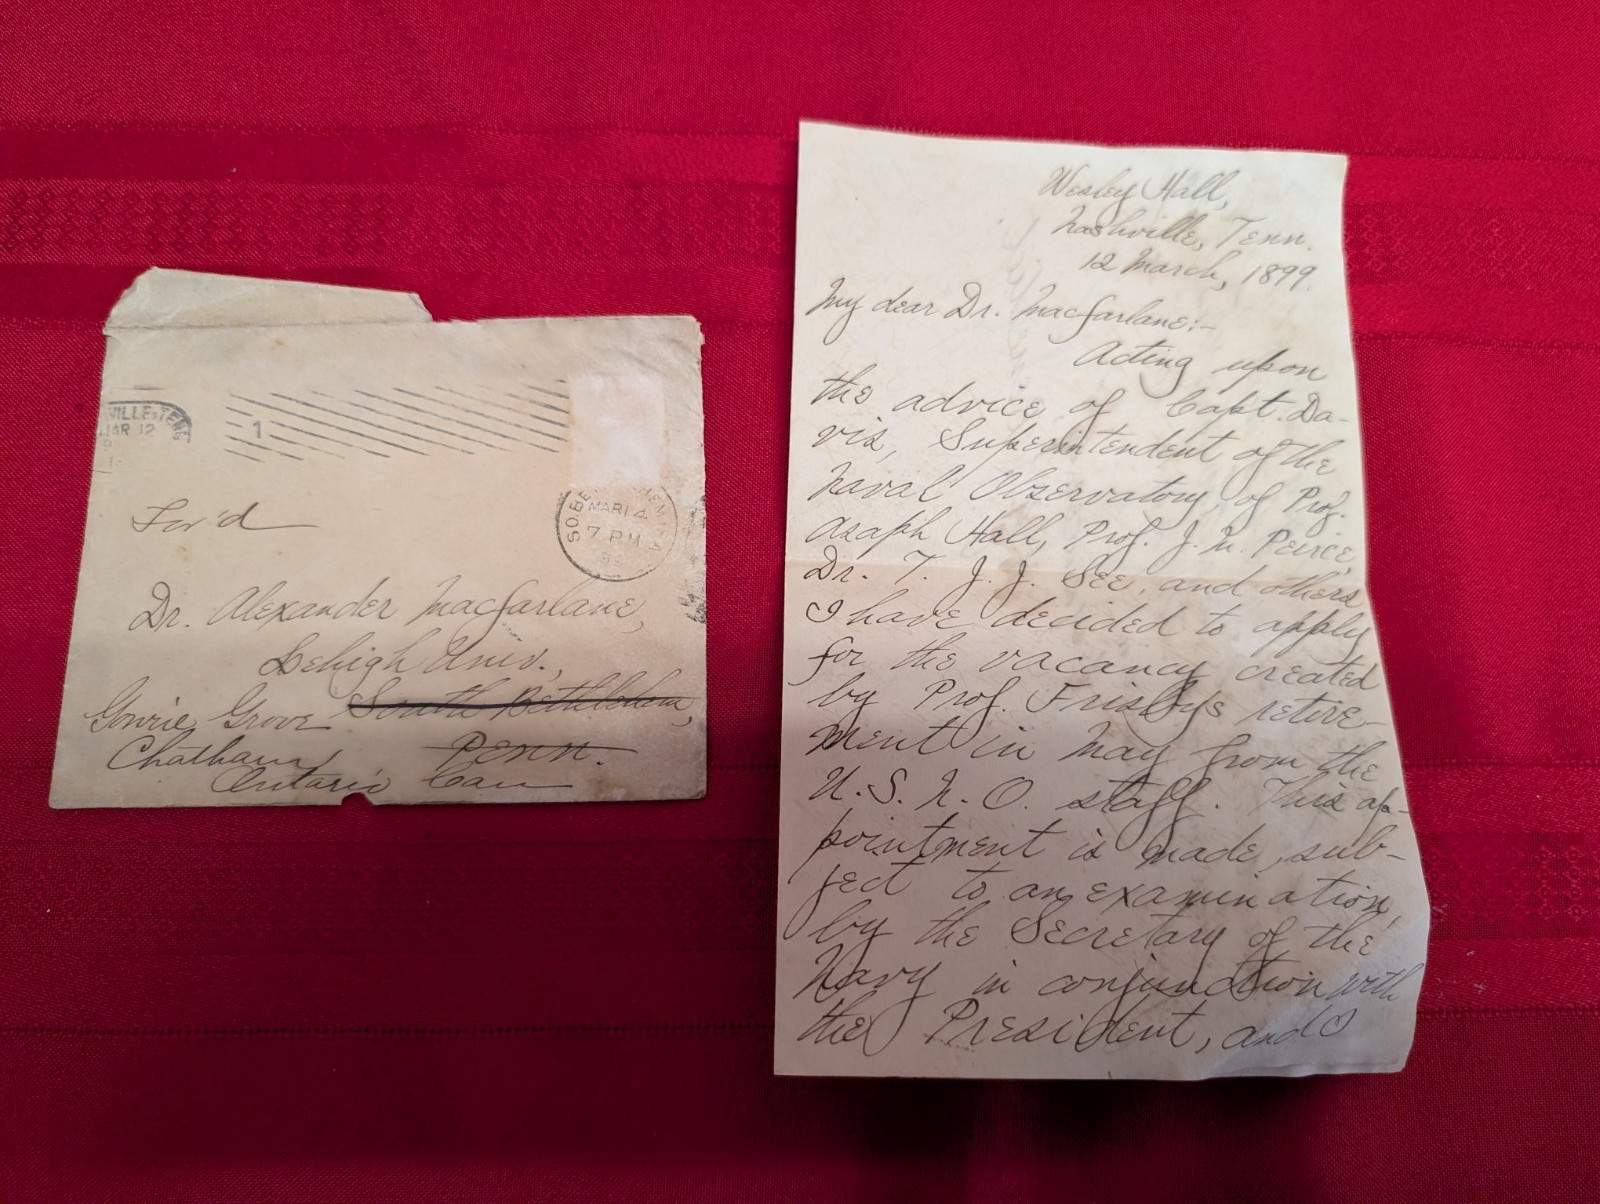 VILLE, TENN
MAR 12
1
SO. BE
MAR 14
7 PM
99
For'd
Dr. Alexander Macfarlane,
Lehigh Univ.,
South Bethlehem,
Penn.
Gowrie Grove
Chatham,
Ontario Can
Wesley Hall,
Nashville, Tenn.
12 March, 1899.
My dear Dr. Macfarlane:-
Acting upon
the advice of Capt. Da-
vis, Superintendent of the
Naval Observatory, of Prof.
Asaph Hall, Prof. J. M. Peirce,
Dr. T. J. J. See, and others
I have decided to apply
for the vacancy created
by Prof. Frisby's retire-
ment in May from the
U. S. N. O. staff. This ap-
pointment is made, sub-
ject to an examination,
by the Secretary of the
Navy in conjunction with
the President, and I